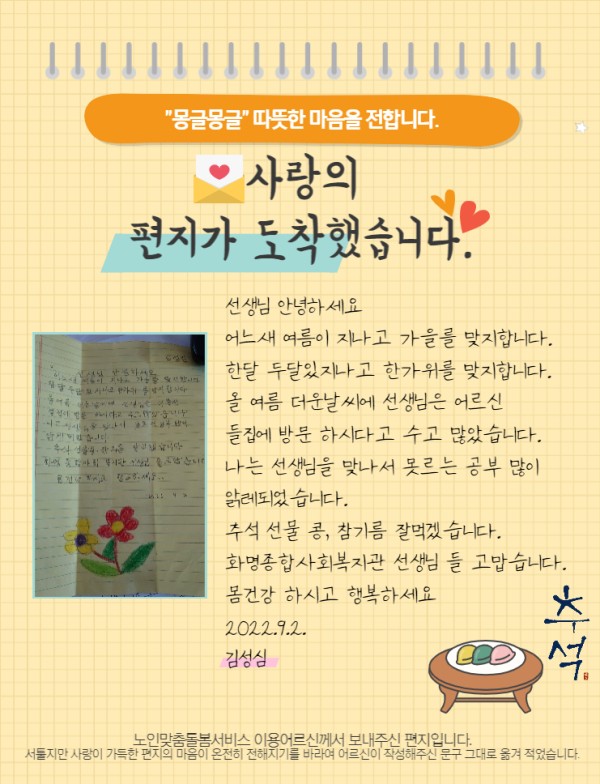 "몽글몽글" 따뜻한 마음을 전합니다.
사랑의
편지가 도착했습니다.
선생님 안녕하세요
어느새 여름이 지나고 가을를 맞지합니다.
한달 두달있지나고 한가위를 맞지합니다.
올 여름 더운날씨에 선생님은 어르신
들집에 방문 하시다고 수고 많았습니다.
나는 선생님을 맞나서 못르는 공부 많이
앍레되었 습니다.
추석 선물 콩, 참기름 잘먹겠습니다.
화명종합사회복지관 선생님 들 고맙습니다.
몸건강 하시고 행복하세요
2022.9.2.
김성심
추석
노인맞춤돌봄서비스 이용어르신께서 보내주신 편지입니다.
서툴지만 사랑이 가득한 편지의 마음이 온전히 전해지기를 바라며 어르신이 작성해주신 문구 그대로 옮겨 적었습니다.